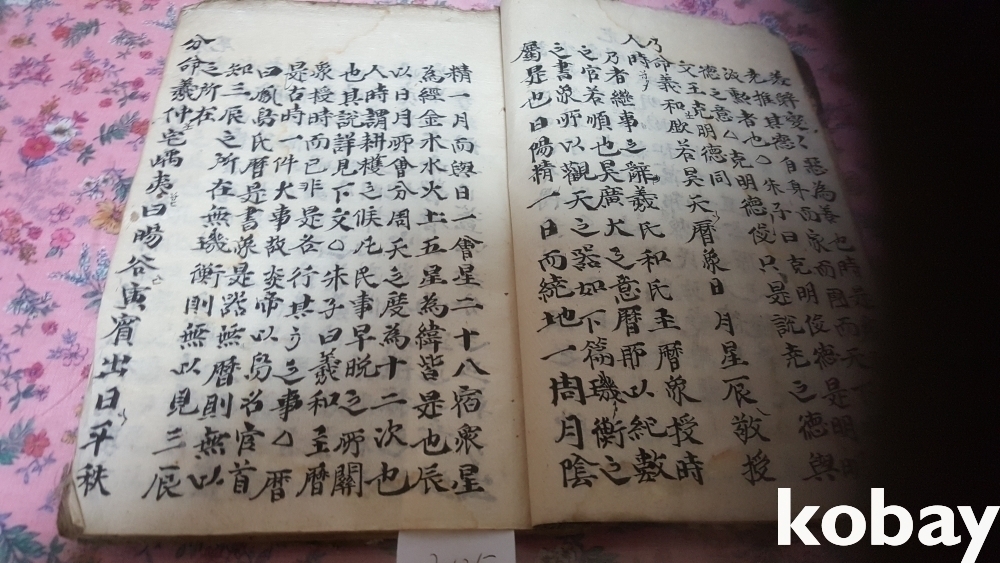 美辭變變惡為善也時是
堯推其德自身而家而國而天
放勳者也○朱子曰克明俊德是明明
德之意○克明德俊只是說堯之德與
文王克明德同
乃命義和欽若昊天曆象日月星辰敬授
人時
乃者繼事之辭義氏和氏主曆象授時
之官若順也昊廣大之意曆所以紀數
之書象所以觀天之器如下篇璣衡之
屬是也日陽精一日而繞地一周月陰
精一月而與日一會星二十八宿衆星
為經金木水火土五星為緯皆是也辰
以日月所會分周天之度為十二次也
人時謂耕穫之候凡民事早晚之所關
也其說詳見下文○朱子曰義和主曆
象授時而已非是各行其方之事○曆
是古時一件大事故炎帝以鳥名官首
曰鳳鳥氏曆是書象是器無曆則無以
知三辰之所在無璣衡則無以見三辰
之所在
分命義仲宅嵎夷曰暘谷寅賓出日平秩
kobay